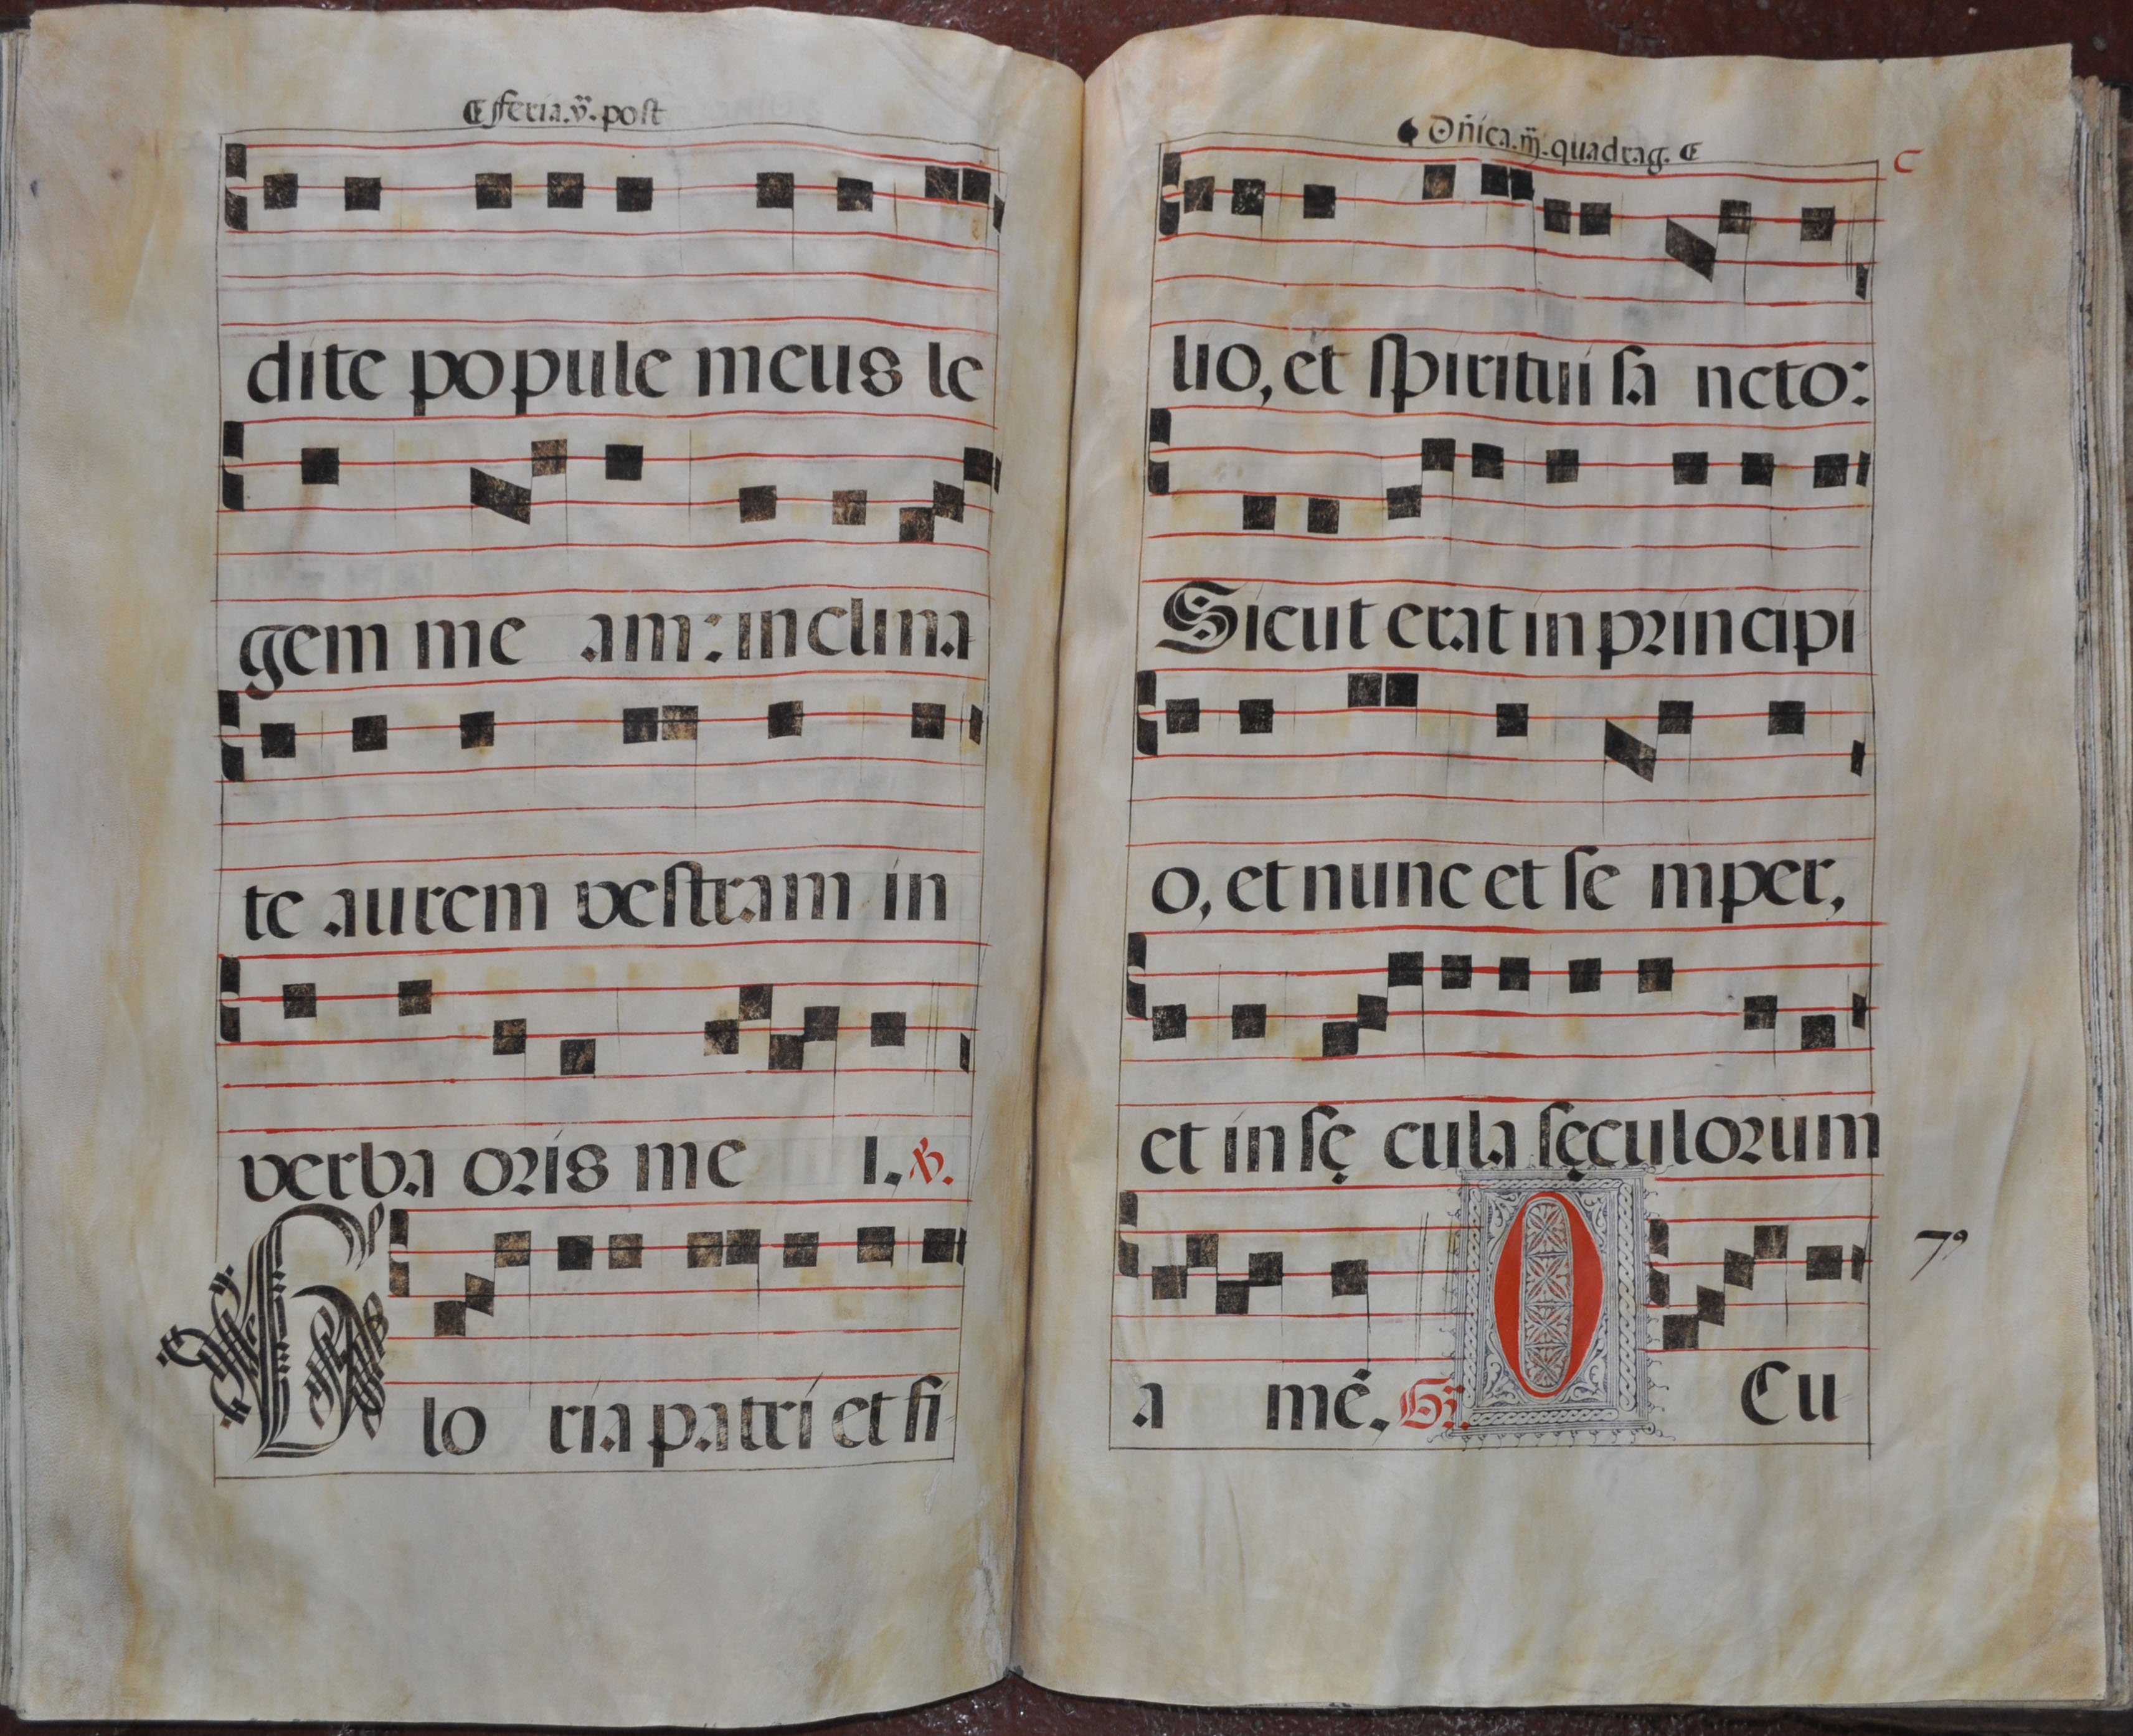 ¶ feria.v̈.post
dite popule meus le
gem me am: inclina
te aurem vestram in
verba oris me i. ℣.
Glo ria patri et fi
Dñica.iij.quadrag.
C
lio, et spiritui sa ncto:
Sicut erat in principi
o, et nunc et se mper,
et in sę cula sęculorum
a mē. Gr. OCu
79